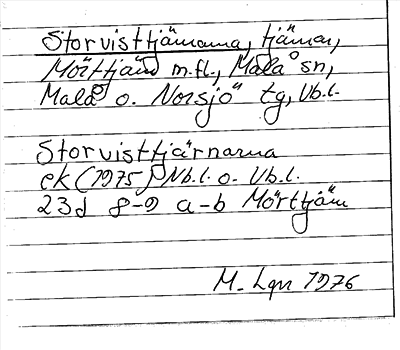 Storvisttjärnarna, tjärnar,
Mörttjärn m.fl., Malå sn,
Malå o. Norsjö tg, Vb.l.
Storvisttjärnarna
ek (1975) Nb.l. o. Vb.l.
23d 8-9 a-b Mörttjärn
M. Lqn 1976